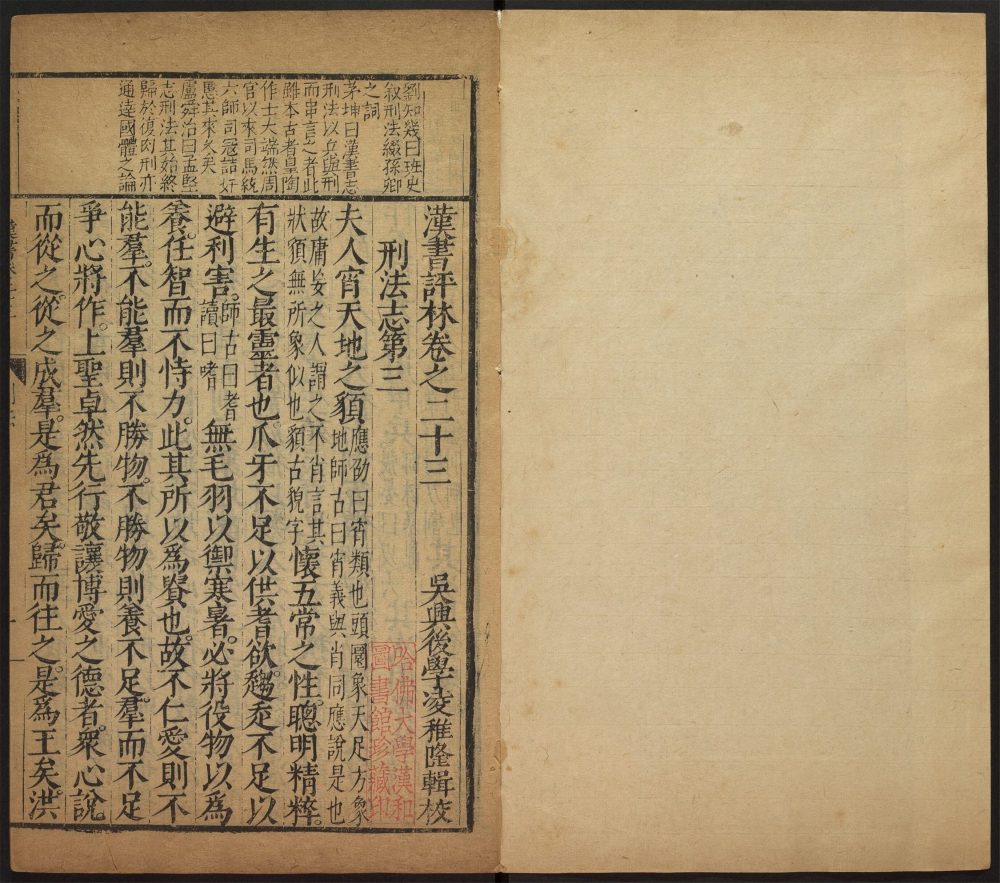 劉知幾曰班史
叙刑法綴孫卿
之詞
茅坤曰漢書志
刑法以兵與刑
而串言之者此
雖本古者皐陶
作士大端然周
官以來司馬統
六師司寇詰奸
慝其來久矣
盧舜治曰孟堅
志刑法其始終
歸於復肉刑亦
通達國體之論
漢書評林卷之二十三 吳興後學凌稚隆輯校
刑法志第三
夫人宵天地之䫉應劭曰宵類也頭圜象天足方象地師古曰宵義與肖同應說是也
故庸妄之人謂之不肖言其狀䫉無所象似也䫉古貌字懷五常之性聰明精粹。
有生之最靈者也爪牙不足以供耆欲趨走不足以
避利害。師古曰耆讀曰嗜無毛羽以禦寒暑。必將役物以爲
養。任智而不恃力。此其所以爲貴也。故不仁愛則不
能羣。不能羣則不勝物。不勝物則養不足。羣而不足
爭心將作。上聖卓然先行敬讓博愛之德者。衆心說。
而從之。從之成羣。是爲君矣。歸而往之。是爲王矣。洪
哈佛大學漢和
圖書館珍藏印